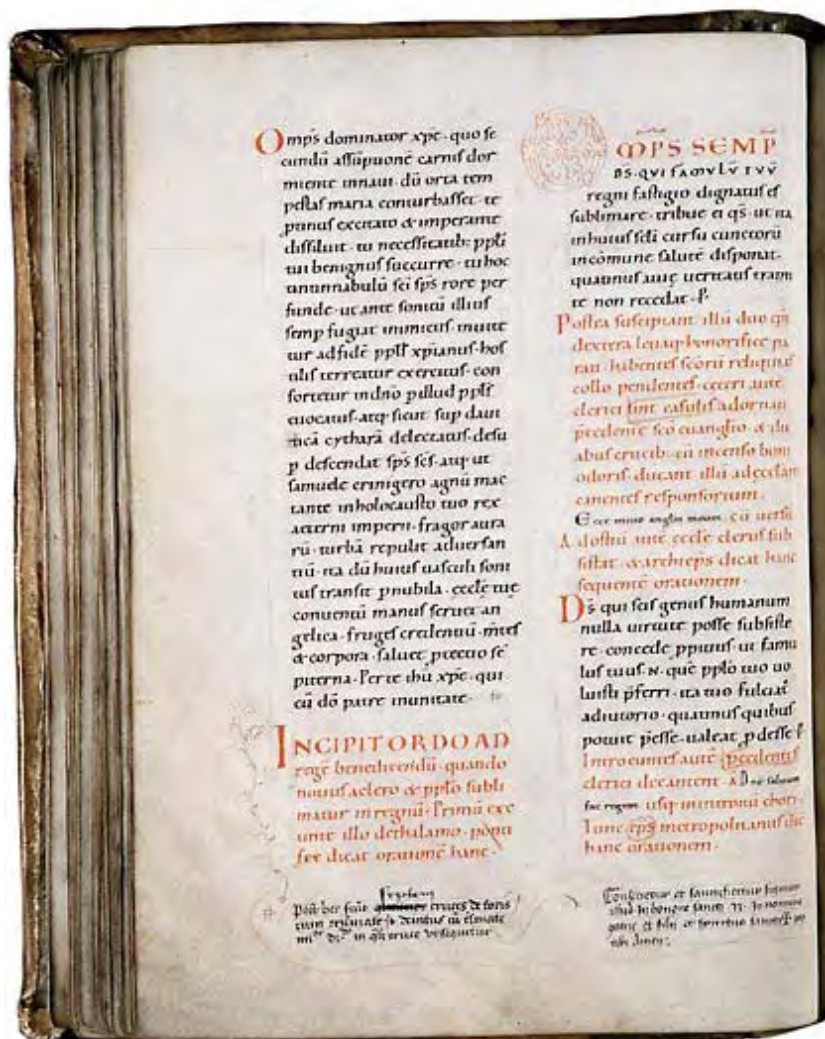 Omps dominator xpe · quo se
cundū assūptione carnis dor
miente in naui · dū orta tem
pestas maria conturbasset · te
ptinus excitato & imperante
dissiluit · tu necessitatib; ppli
tui benignus succurre · tu hoc
tintinnabulū sci sps rore per
funde · ut ante sonitū illius
semp fugiat inimicus · inuite
tur ad fidē ppls xpianus · hos
tilis terreatur exercitus · con
fortetur in dno p illud ppls
euocatus · atq; sicut sup daui
ticā cytharā delectatus · desu
p descendat sps scs · atq; ut
samuele crinigero agnū mac
tante in holocausto tuo rex
aeterni imperii · fragor aura
rū · turbā repulit aduersan
tiū · ita dū huius uasculi soni
tus transit p nubila · eccle tuę
conuentū manus seruet an
gelica · fruges credentiū · mtes
& corpora · saluet ptectio sē
piterna · Per te ihu xpe · qui
cū dō patre in unitate ·
INCIPIT ORDO AD
regē benedicendū · quando
nouus a clero & pplo subli
matur in regnū · Primū exe
unte illo de thalamo · ponti
fex dicat orationē hanc ·
Post hec fiunt cruces de foris
OMPS SEMP
DS · QVI FAMVLV TVV
regni fastigio dignatus es
sublimare · tribue ei qs · ut ita
in huius scli cursu cunctorū
in comune salutē disponat ·
quatinus a tuę ueritatis tram
te non recedat · P.
Postea suscipiant illū duo epi
dextera leuaq; honorifice pa
rati · habentes scōrū reliquias
collo pendentes · ceteri autē
clerici sint casulis adornati
pcedente scō euanglio & du
abus crucib; cū incenso boni
odoris · ducant illū ad ecclam
canentes responsorium ·
Ecce mitto anglm meum · cū uersu
Ad ostiū autē eccle clerus sub
sistat · & archieps dicat hanc
sequentē orationem ·
Ds qui scis genus humanum
nulla uirtute posse subsiste
re · concede ppitius · ut famu
lus tuus · N · quē pplo tuo uo
luisti pferri · ita tuo fulciat
adiutorio · quatinus quibus
potuit pesse · ualeat & pdesse · P
Introeuntes autē pcedentes
clerici decantent · A Dne saluum
fac regem usq; in introitū chori ·
Tunc eps metropolitanus dic
hanc orationem ·
Consecretur et sanctificetur signum
istud in honore sancti N · In nomine